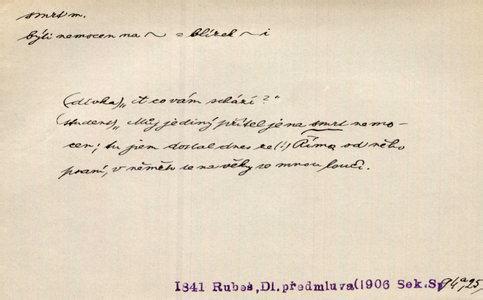 smrt m.
býti nemocen na ~ = blízek ~i
(dívka) „A co vám schází?"
(student) „Můj jediný přítel je na smrt nemo-
cen; tu jsem dostal dnes ze(!) Říma od něho
psaní, v němž se na věky se mnou loučí.
1841 Rubeš, Dl. předmluva (1906 Sek. Sp 94a, 25